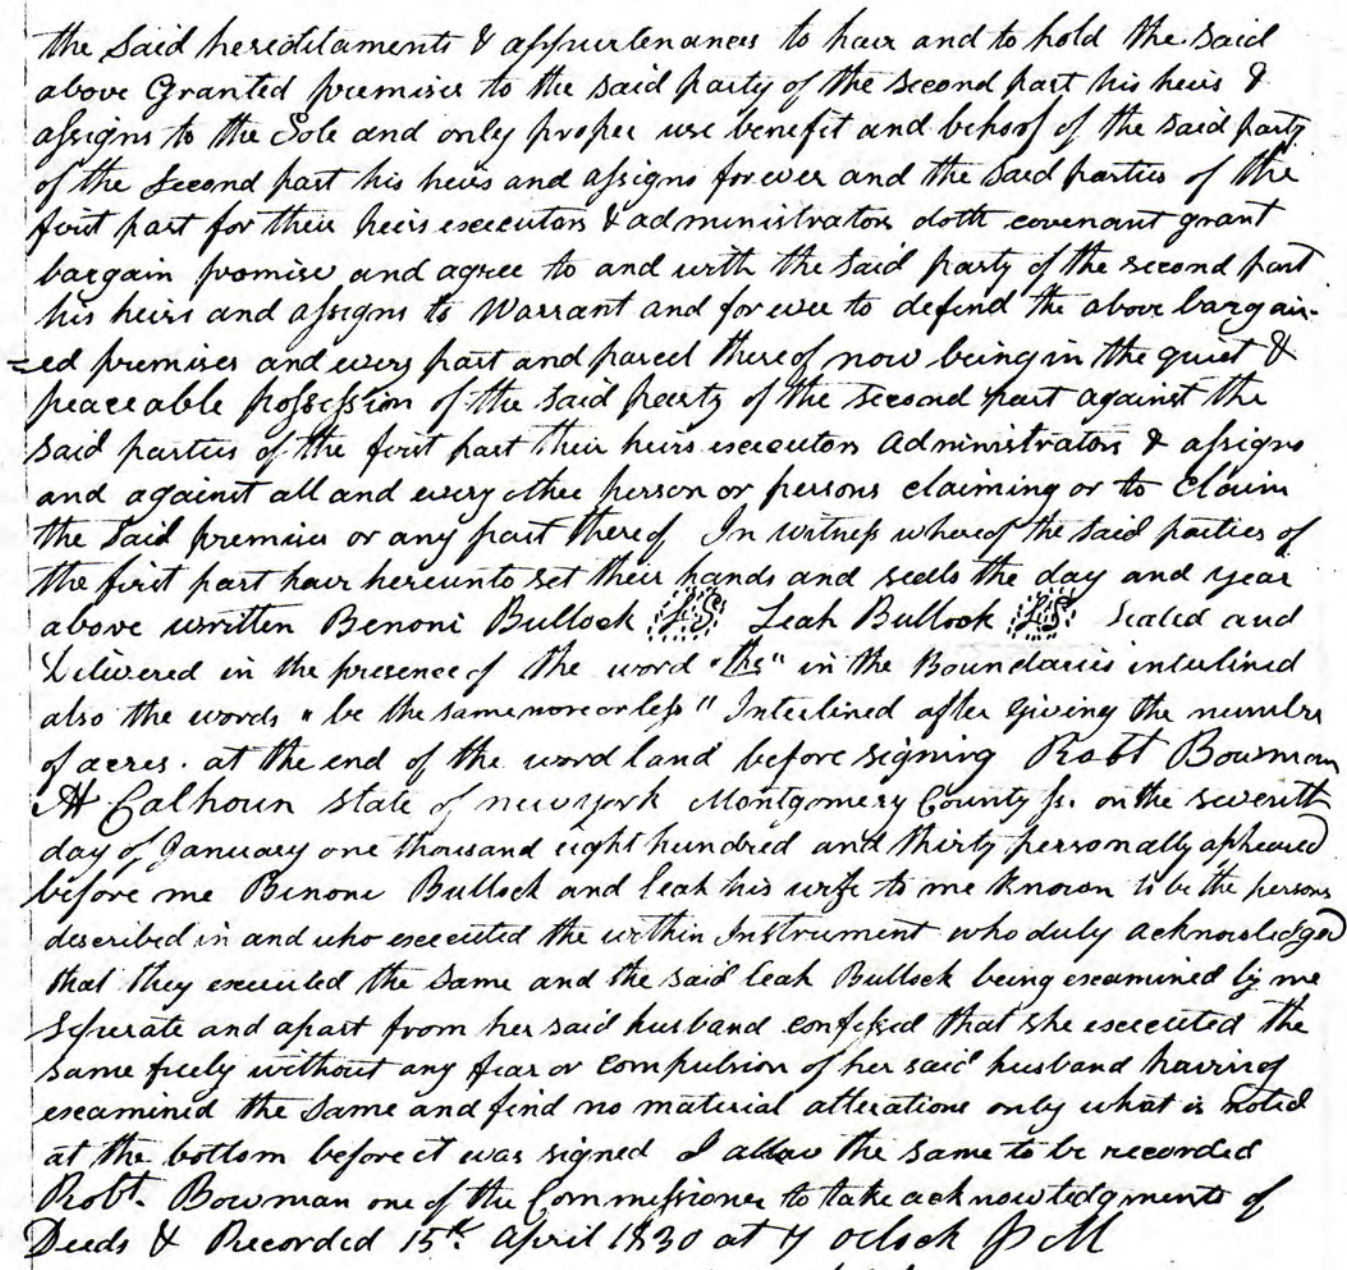 the Said hereditaments & appurtenances to have and to hold the Said
above Granted premises to the said party of the second part his heirs &
assigns to the Sole and only proper use benefit and behoof of the said party
of the Second part his heirs and assigns forever and the Said parties of the
first part for their heirs executors & administrators doth covenant grant
bargain promise and agree to and with the Said party of the second part
his heirs and assigns to Warrant and forever to defend the above bargain-
=ed premises and every part and parcel thereof now being in the quiet &
peaceable possession of the said party of the Second part against the
Said parties of the first part their heirs executors administrators & assigns
and against all and every other person or persons claiming or to Claim
the Said premises or any part thereof In witness whereof the Said parties of
the first part have hereunto set their hands and seals the day and year
above written Benoni Bullock L S Leah Bullock L S Sealed and
Delivered in the presence of the word "the" in the Boundaries interlined
also the words "be the same more or less" Interlined after giving the number
of acres. at the end of the word land before signing Robt Bowman
A Calhoun State of new york Montgomery County ss. on the seventh
day of January one thousand eight hundred and thirty personally appeared
before me Benoni Bullock and leah his wife to me known to be the persons
described in and who executed the within Instrument who duly acknowledged
that they executed the Same and the said leah Bullock being examined by me
Seperate and apart from her said husband confessed that she executed the
Same freely without any fear or Compulsion of her said husband having
examined the Same and find no material alterations only what is noted
at the bottom before it was signed I allow the same to be recorded
Robt. Bowman one of the Commissioner to take acknowledgments of
Deeds & Recorded 15th. April 1830 at 4 oclock P M